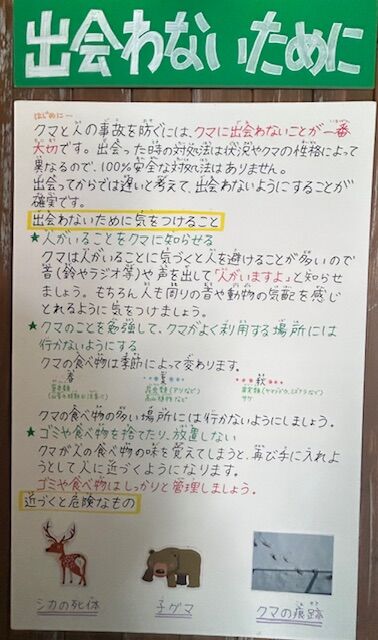 出会わないために
はじめに
クマと人の事故を防ぐには、クマに出会わないことが一番
大切です。出会った時の対処法は状況やクマの性格によって
異なるので、100%安全な対処法はありません。
出会ってからでは遅いと考えて、出会わないようにすることが
確実です。
出会わないために気をつけること
★人がいることをクマに知らせる
クマは人がいることに気づくと人を避けることが多いので
音(鈴やラジオ等)や声を出して「人がいますよ」と知らせ
ましょう。もちろん人も周りの音や動物の気配を感じ
とれるように気をつけましょう。
★クマのことを勉強して、クマがよく利用する場所には
行かないようにする
クマの食べ物は季節によって変わります。
春 夏 秋
クマの食べ物の多い場所には行かないようにしましょう。
★ゴミや食べ物を捨てたり、放置しない
クマが人の食べ物の味を覚えてしまうと、再び手に入れよ
うとして人に近づくようになります。
ゴミや食べ物はしっかりと管理しましょう。
近づくと危険なもの
シカの死体 子グマ クマの痕跡